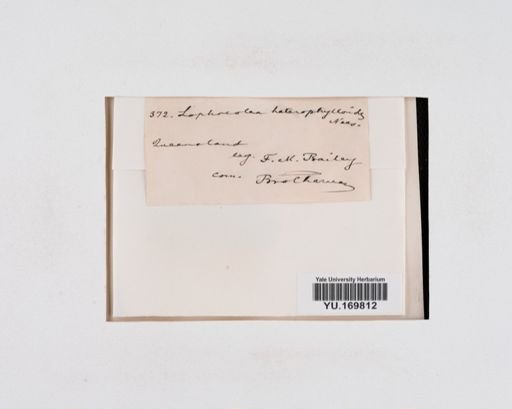 372. Lophocolea heterophylloides
Nees.
Queensland
leg. F. M. Bailey
com. Brotherus
Yale University Herbarium
YU.169812